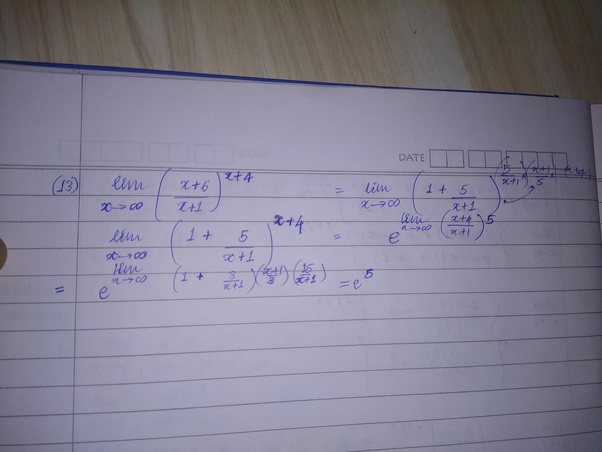 DATE
(13) lim x→∞ (x+6/x+1)^x+4 = lim x→∞ (1 + 5/x+1)^(5/x+1)·(x+1/5)·(x+4)
lim x→∞ (1 + 5/x+1)^x+4 = e^lim x→∞ (x+4/x+1)5
= e^lim x→∞ (1 + 3/x+1)(x+1/3)(15/x+1) = e^5